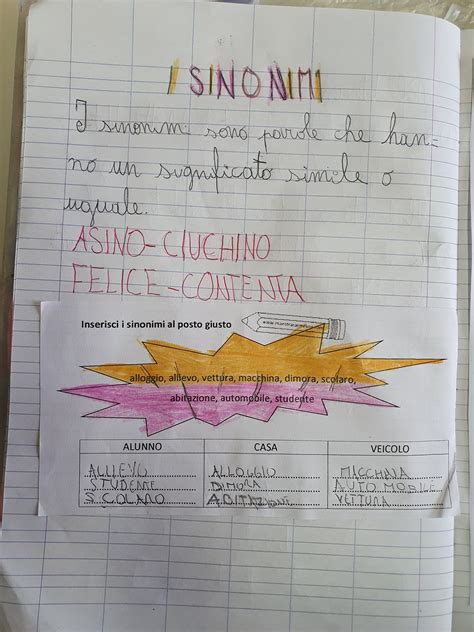 I SINONIMI
I sinonimi sono parole che han=
no un significato simile o
uguale.
ASINO-CIUCHINO
FELICE-CONTENTA
Inserisci i sinonimi al posto giusto
alloggio, allievo, vettura, macchina, dimora, scolaro,
abitazione, automobile, studente
ALUNNO CASA VEICOLO
ALLIEVO ALLOGGIO MACCHAIA
STUDENTE DIMORA AUTOMOBILE
SCOLARO ABITAZIONE VETTURA